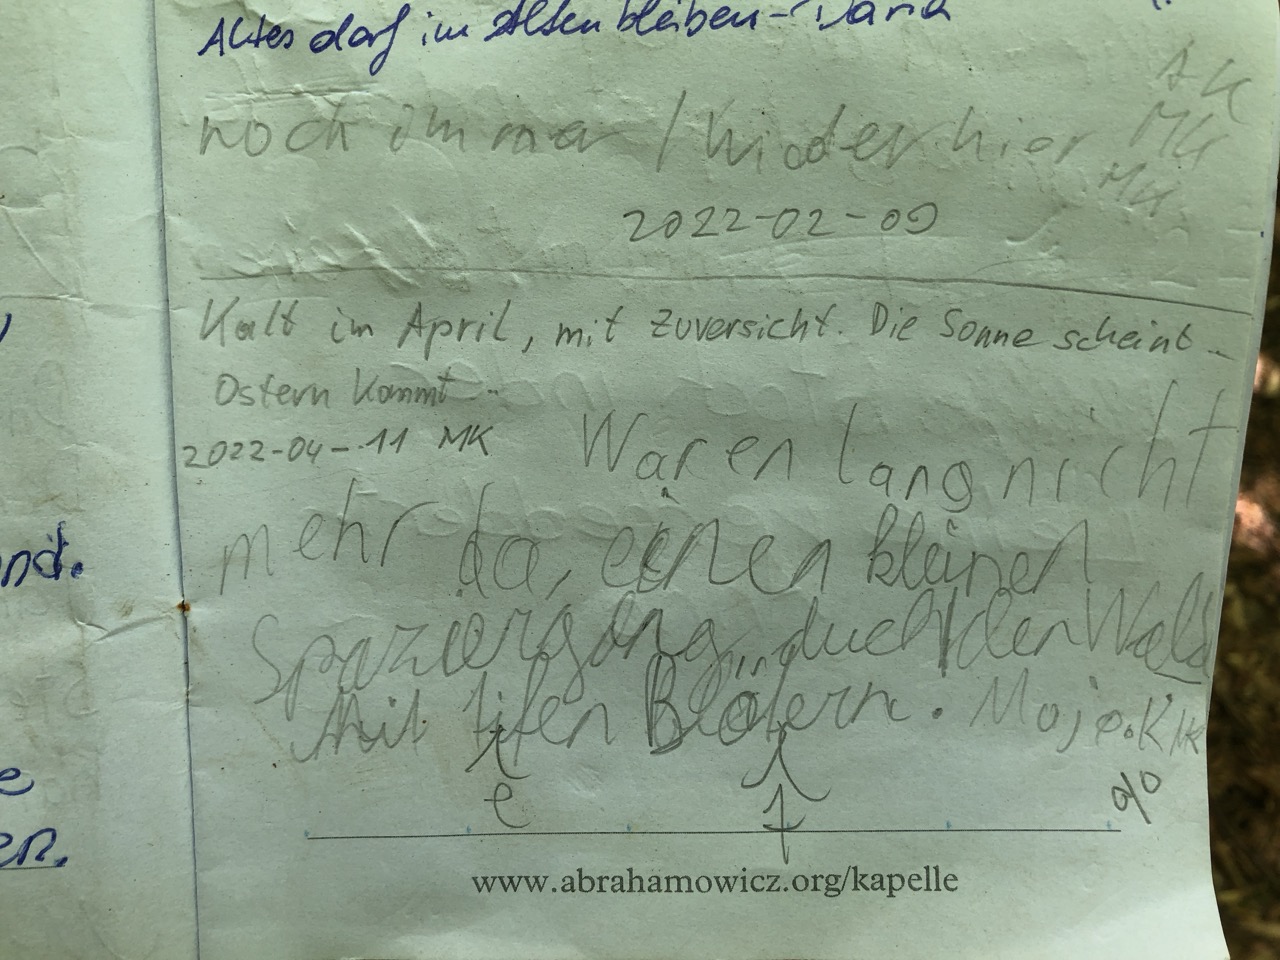 Altes darf im Alten bleiben - Dana
noch immer / wieder hier
AK
MK
MK
2022-02-09
Kalt im April, mit Zuversicht. Die Sonne scheint..
Ostern kommt..
2022-04-11 MK
Waren lang nicht
mehr da, einen kleinen
Spaziergang duch den Wald
Mit tifen Blätern. K MK
e t
www.abrahamowicz.org/kapelle
nd.
e
en.